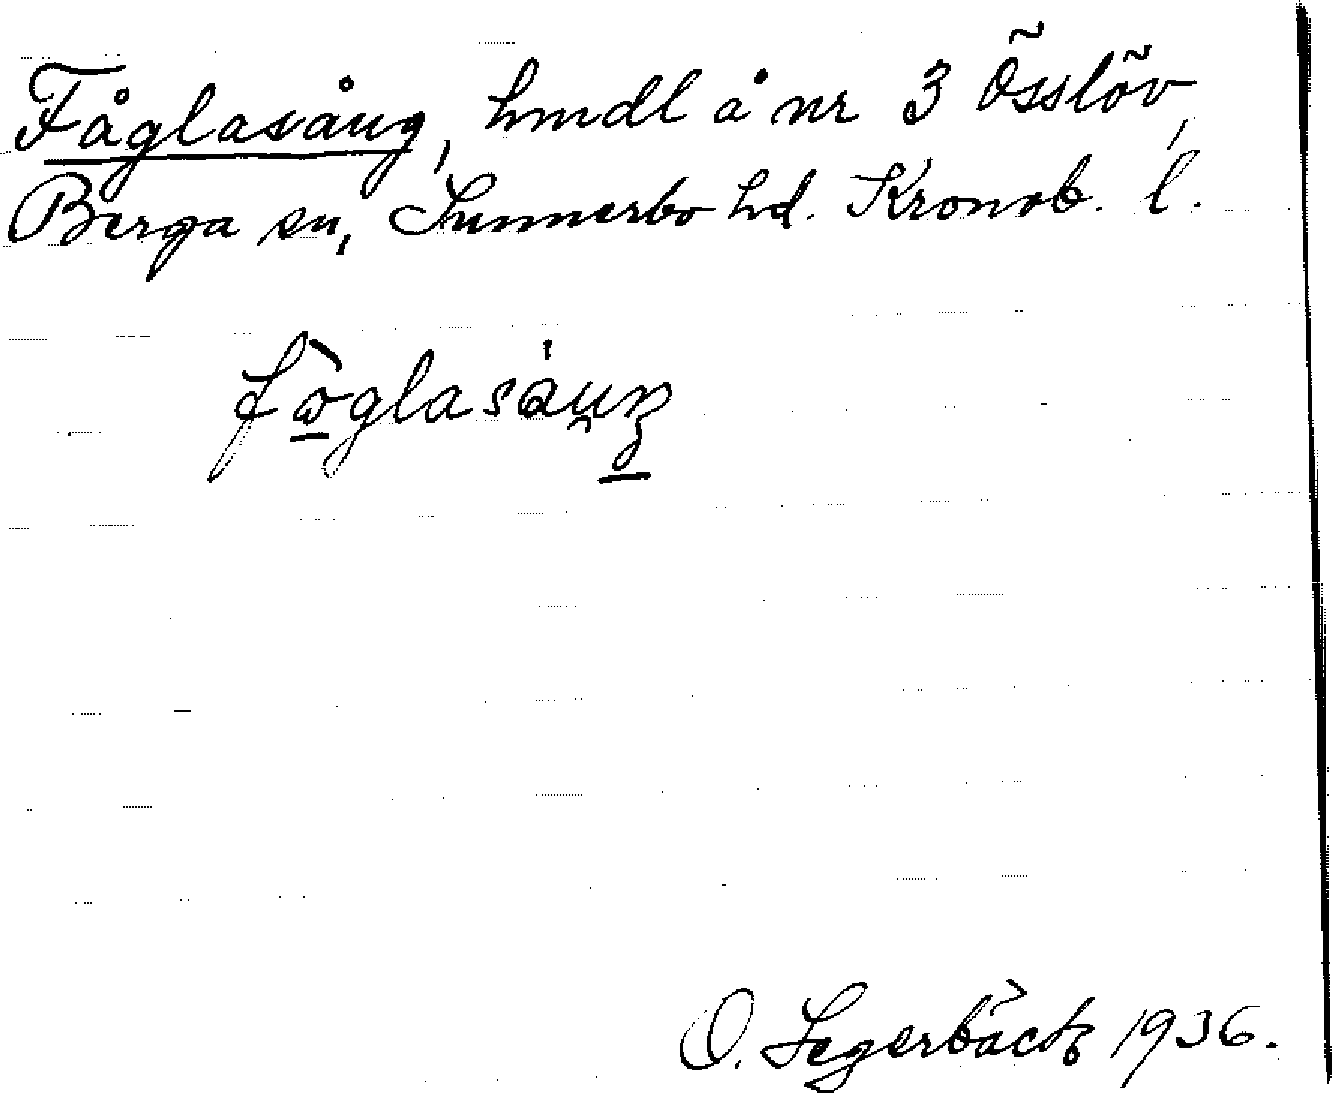 Fåglasång, hmdl å nr 3 Össlöv,
Berga sn, Sunnerbo hd. Kronob. l.
O. Segerbäck 1936.